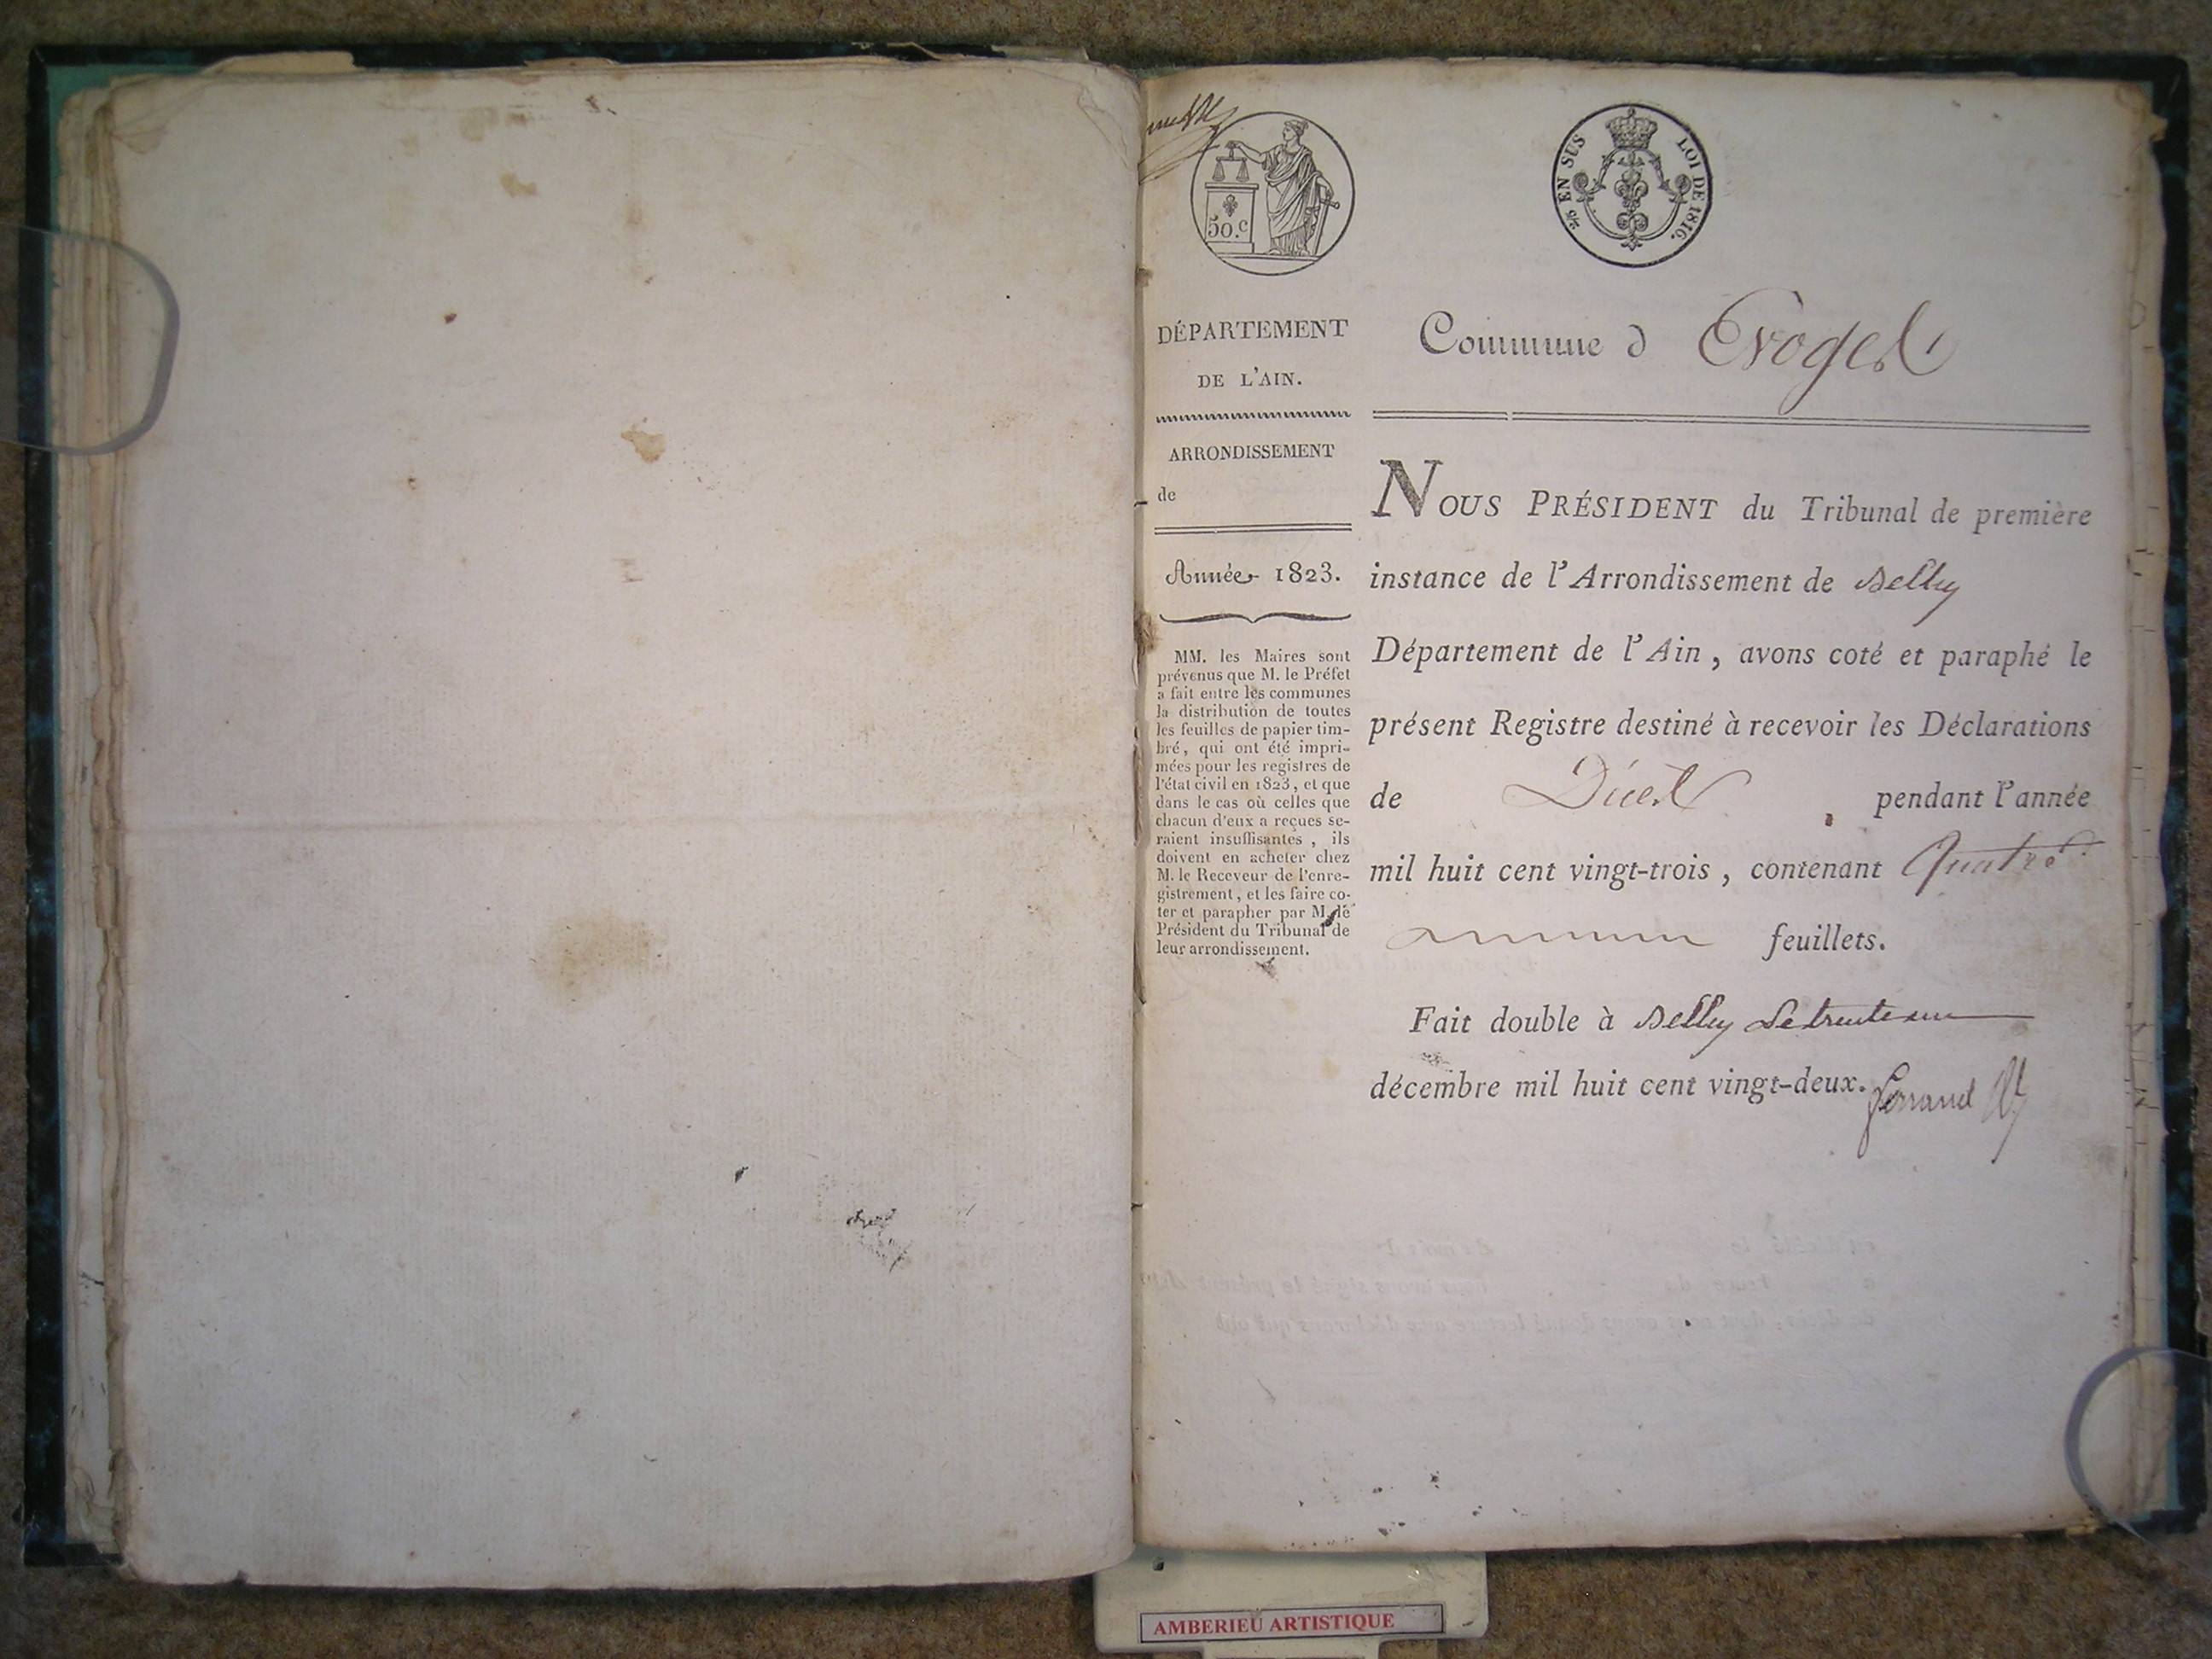 50.c
2/5 EN SUS LOI DE 1816.
DÉPARTEMENT
DE L'AIN.
ARRONDISSEMENT
de
Année 1823.
MM. les Maires sont
prévenus que M. le Préfet
a fait entre les communes
la distribution de toutes
les feuilles de papier tim-
bré, qui ont été impri-
mées pour les registres de
l'état civil en 1823, et que
dans le cas où celles que
chacun d'eux a reçues se-
raient insuffisantes, ils
doivent en acheter chez
M. le Receveur de l'enre-
gistrement, et les faire co-
ter et parapher par M. le
Président du Tribunal de
leur arrondissement.
Commune d Evoges
NOUS PRÉSIDENT du Tribunal de première
instance de l'Arrondissement de Belley
Département de l'Ain, avons coté et paraphé le
présent Registre destiné à recevoir les Déclarations
de Décès pendant l'année
mil huit cent vingt-trois, contenant Quatre
feuillets.
Fait double à Belley Le trente un
décembre mil huit cent vingt-deux.
AMBERIEU ARTISTIQUE